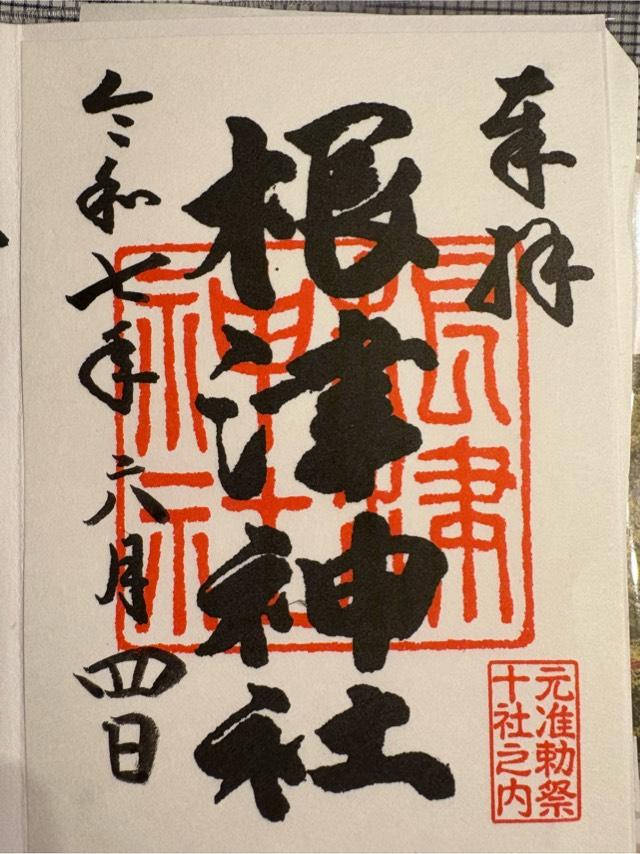 奉拝
根津神社
令和七年六月四日
根津
神社
元准勅祭
十社之内